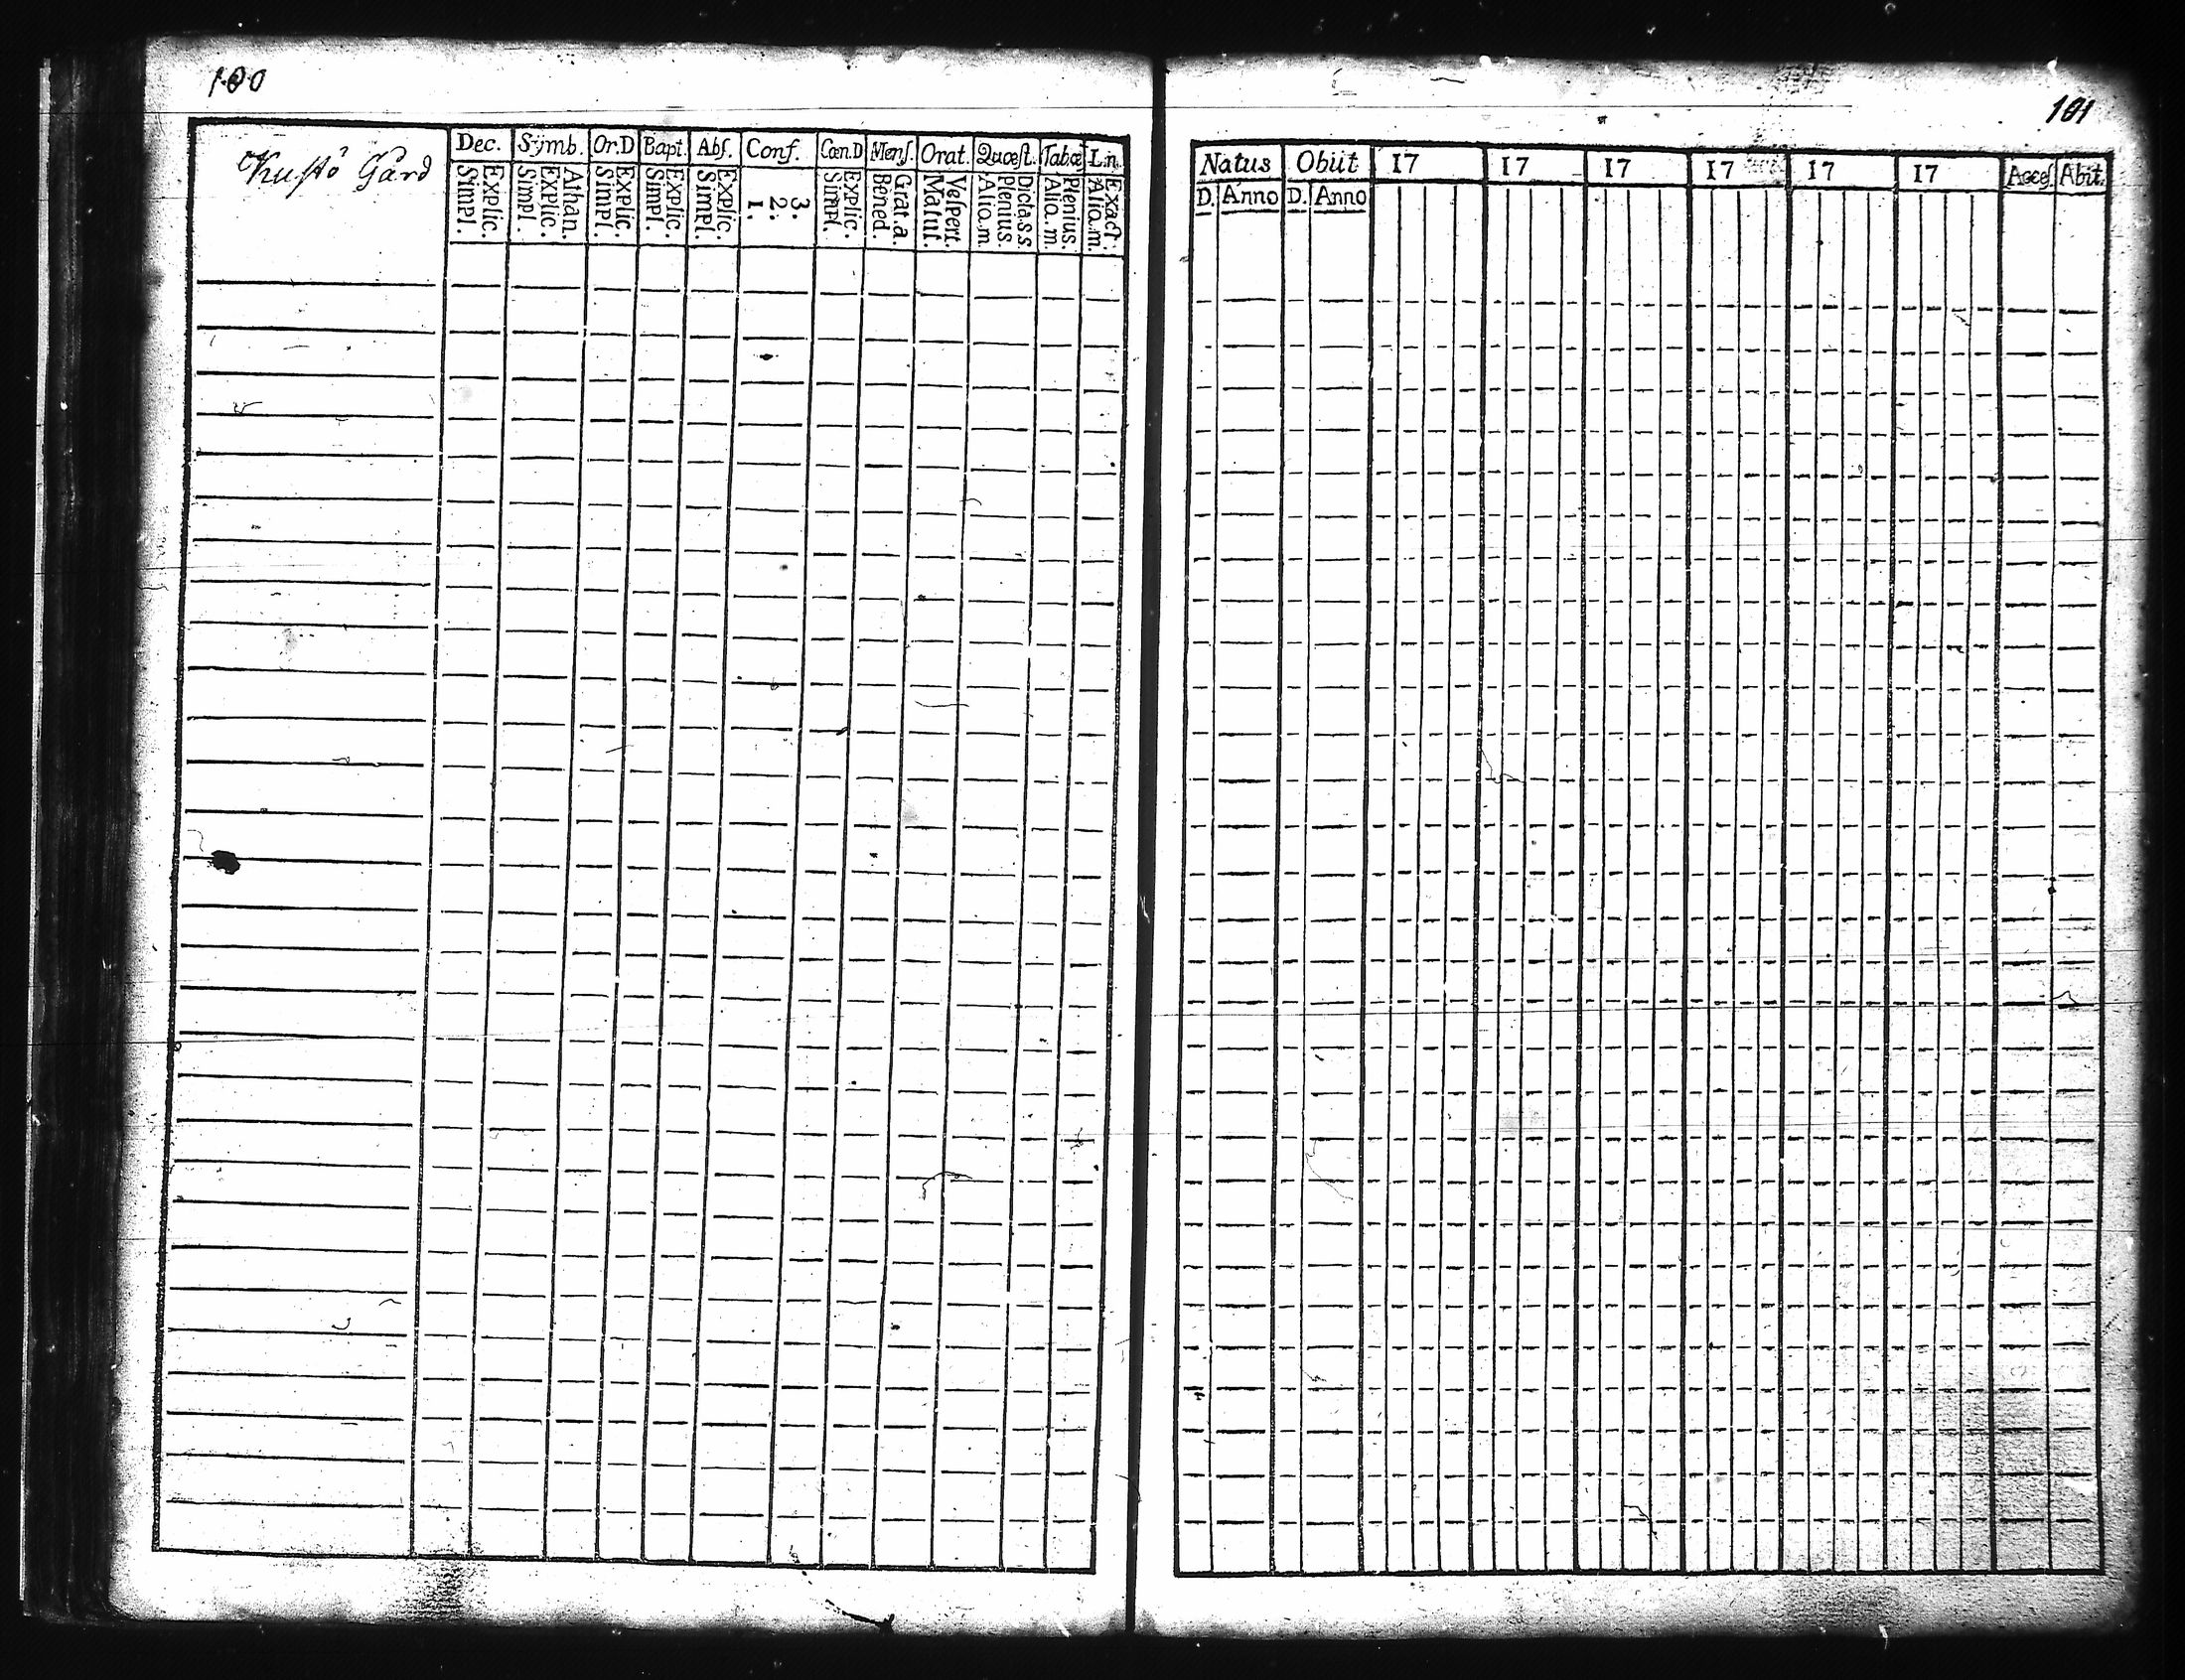 100
Kustö Gård
Dec. Symb. Or.D Bapt. Abs. Conf. Cœn.D Mens. Orat. Quæst. Tabæ Lin.
Explic. Simpl. Athan. Explic. Simpl. Explic. Simpl. Explic. Simpl. Explic. Simpl. 3. 2. 1. Explic. Simpl. Grat.a. Bened. Vespert. Matut. Dicta.s.s. Plenius. Alio.m. Plenius. Alio.m. Exact: Alio.m.
101
Natus Obiit 17 17 17 17 17 17 Acces. Abit.
D. Anno D. Anno